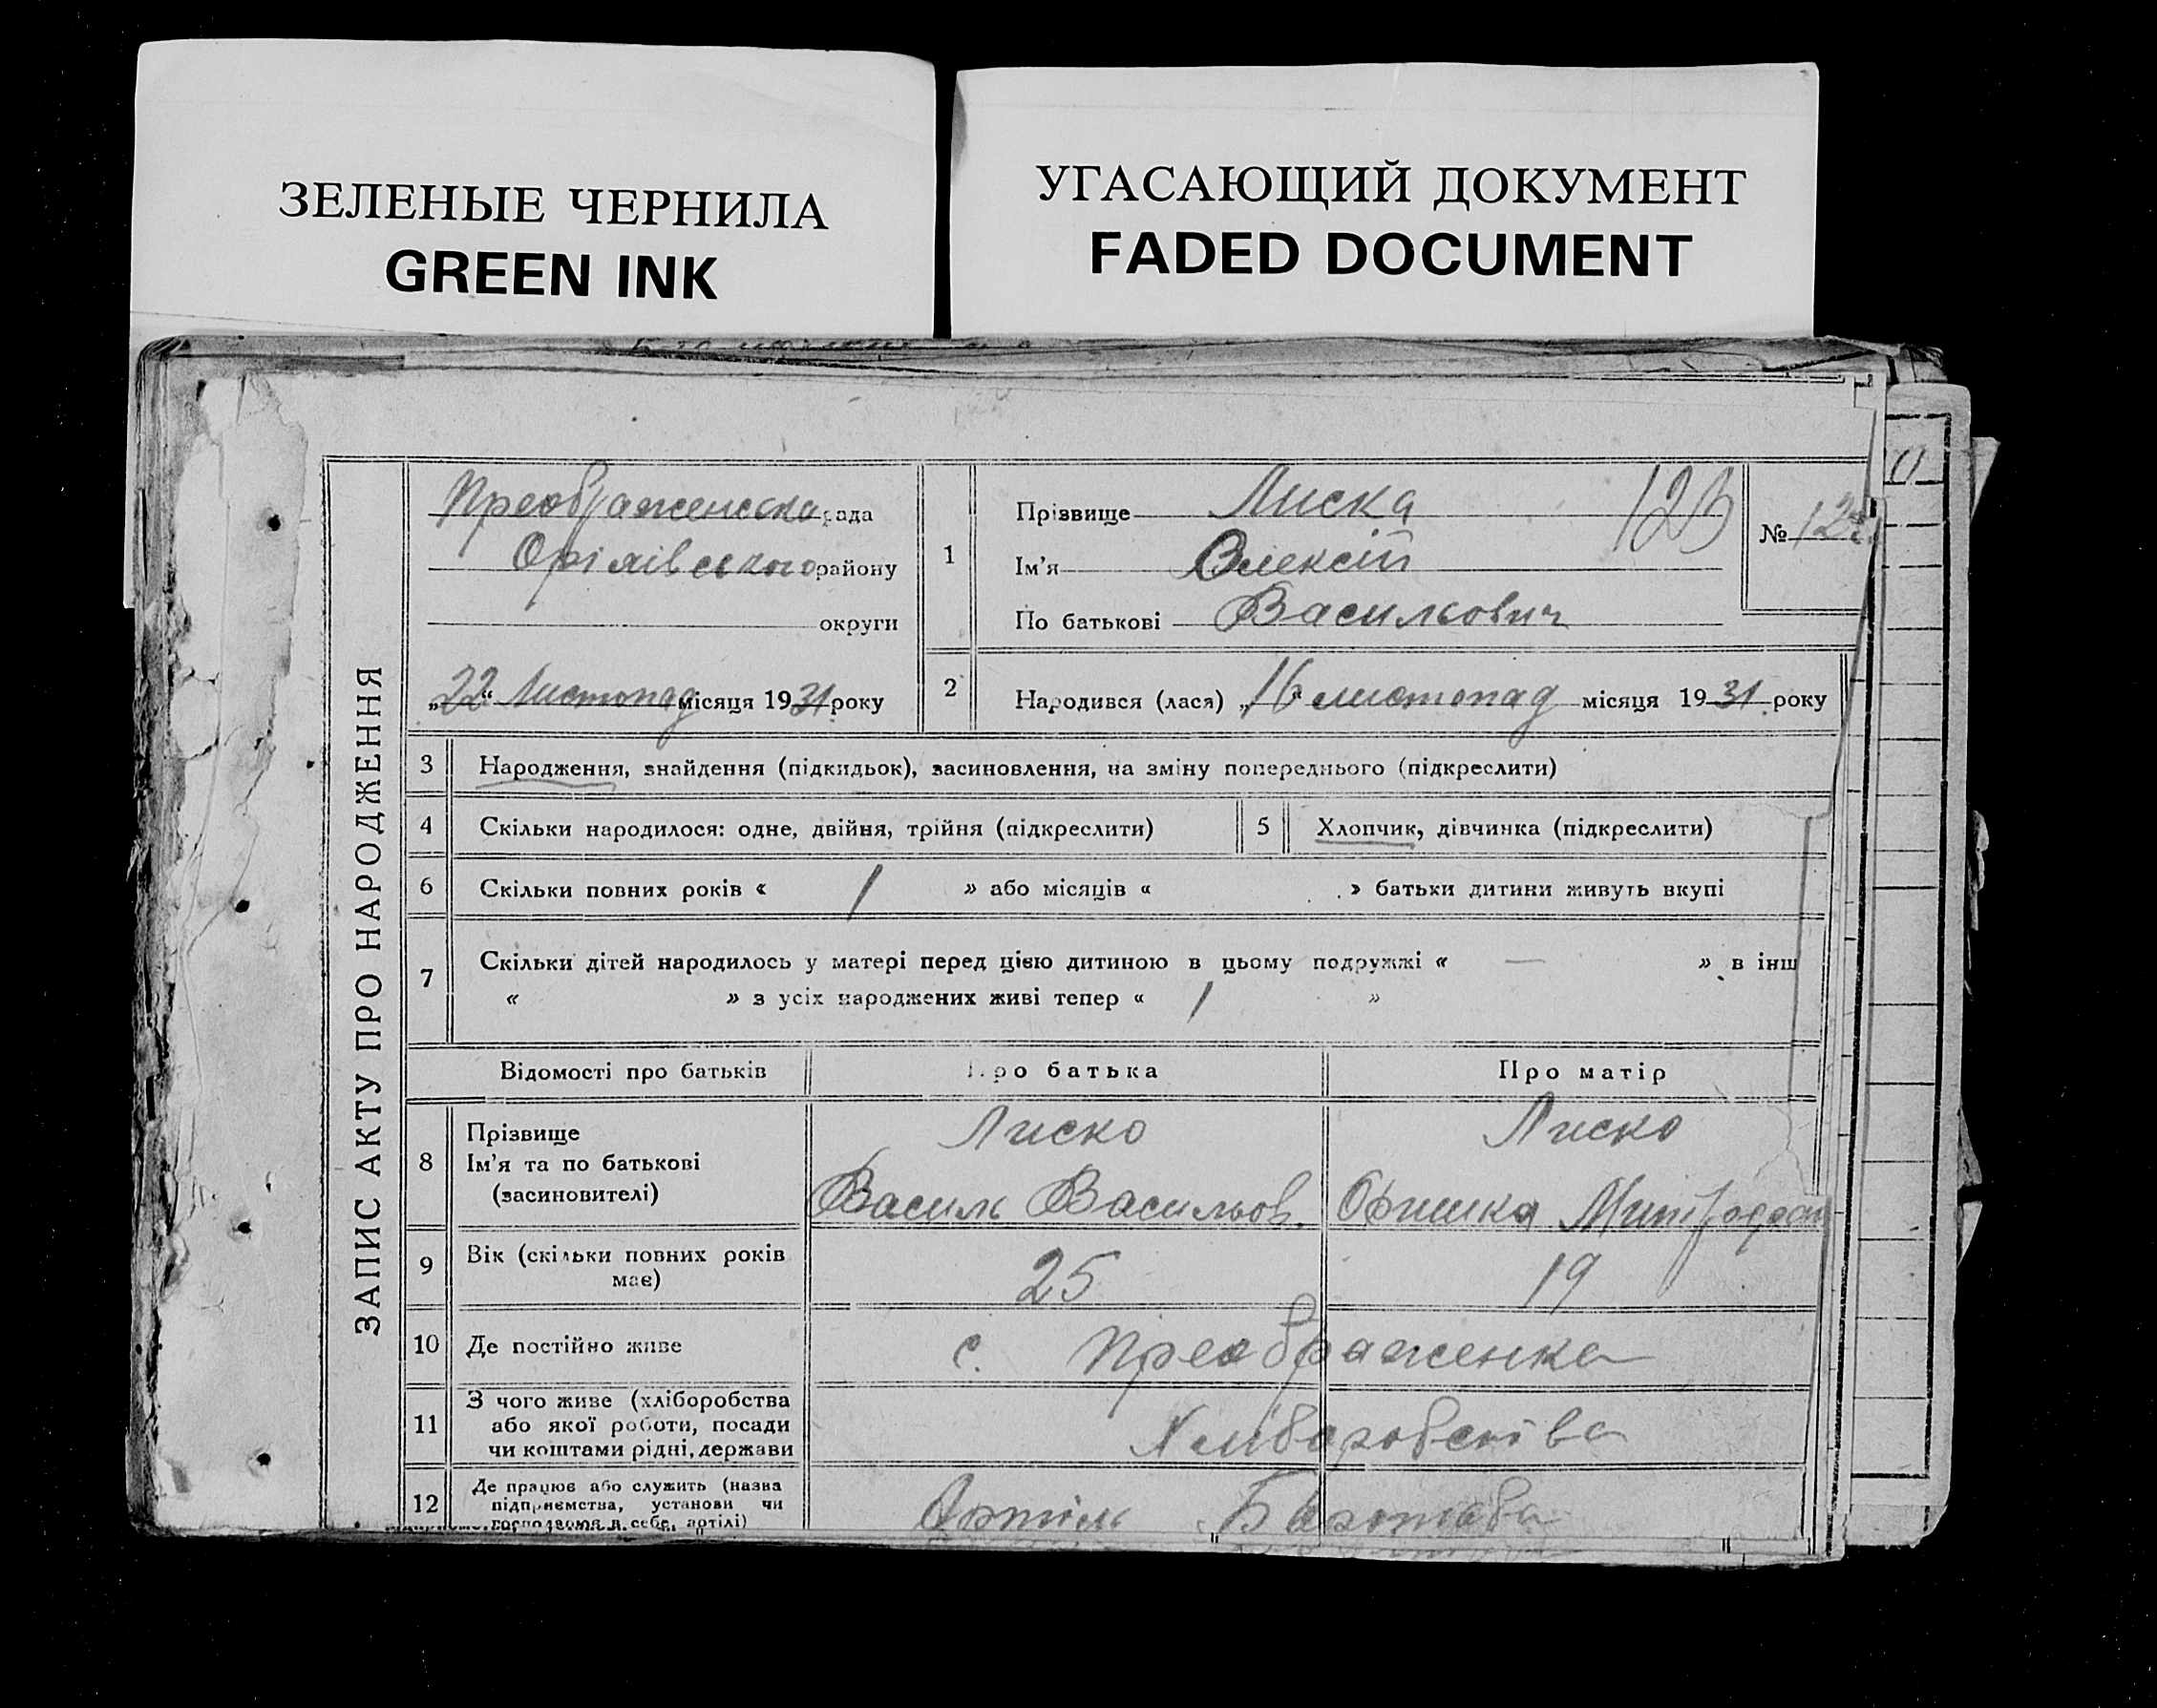 ЗЕЛЕНЫЕ ЧЕРНИЛА
GREEN INK
УГАСАЮЩИЙ ДОКУМЕНТ
FADED DOCUMENT
ЗАПИС АКТУ ПРО НАРОДЖЕННЯ
Преображенська рада
району
округи
„22“ Листопад місяця 1931 року
1
Прізвище Лиска
Ім’я Олексій
По батькові Васильович
123
№ 12
2
Народився (лася) „16“ листопад місяця 1931 року
3 Народження, знайдення (підкидьок), засиновлення, на зміну попереднього (підкреслити)
4 Скільки народилося: одне, двійня, трійня (підкреслити)
5 Хлопчик, дівчинка (підкреслити)
6 Скільки повних років « 1 » або місяців « » батьки дитини живуть вкупі
7 Скільки дітей народилось у матері перед цією дитиною в цьому подружжі « — » в інш
« » з усіх народжених живі тепер « 1 »
Відомості про батьків Про батька Про матір
8 Прізвище
Ім’я та по батькові
(засиновителі)
Лиско
Василь Васильов.
Лиско
9 Вік (скільки повних років
має)
25 19
10 Де постійно живе с. Преображенка
11 З чого живе (хліборобства
або якої роботи, посади
чи коштами рідні, держави
12 Де працює або служить (назва
підприємства, установи чи
господвома в себе, артілі)
Артіль